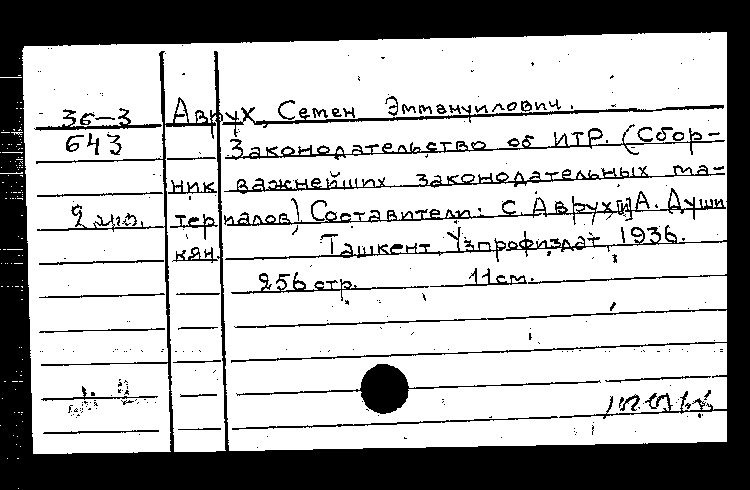 36-3 Аврух, Семен Эммануилович.
643 Законодательство об ИТР. (Сбор-
ник важнейших законодательных ма-
2 экз. териалов) Составители: С. Аврух [и] А. Души
кян. Ташкент, Узпрофиздат, 1936.
256 стр. 11 см.